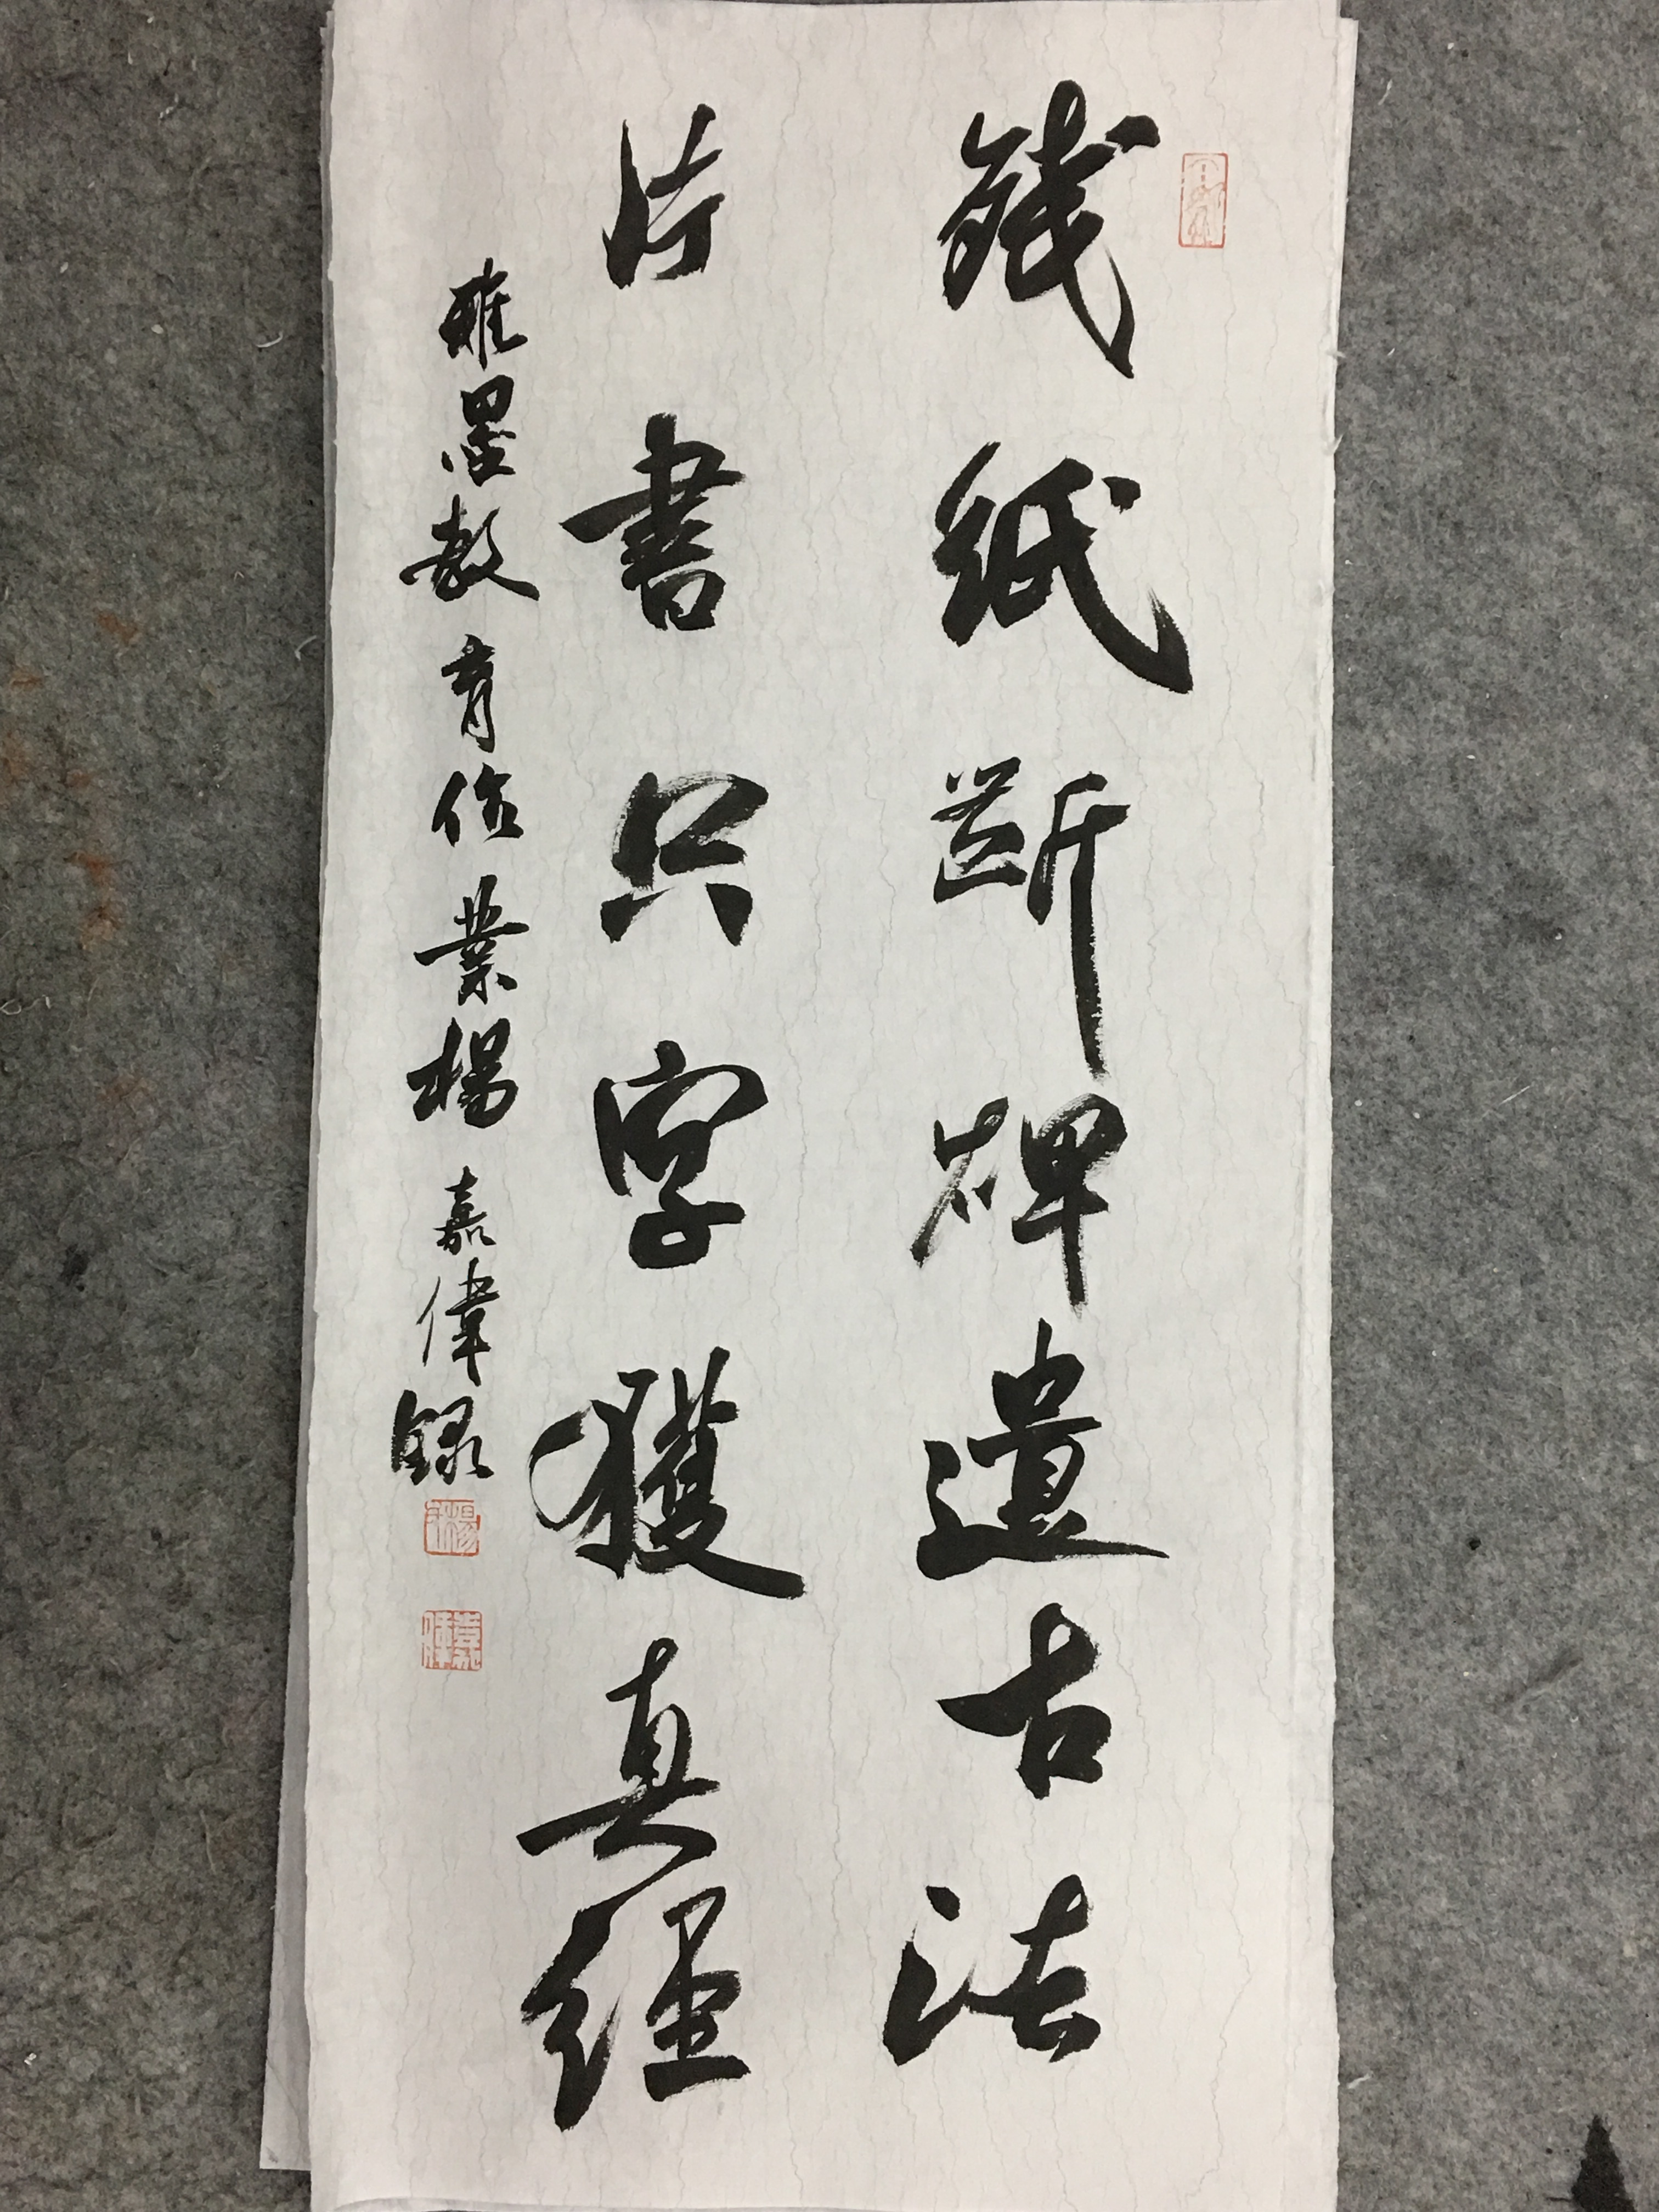 殘紙斷碑遺古法
片書只字獲真經
雅墨教育作業楊嘉偉録